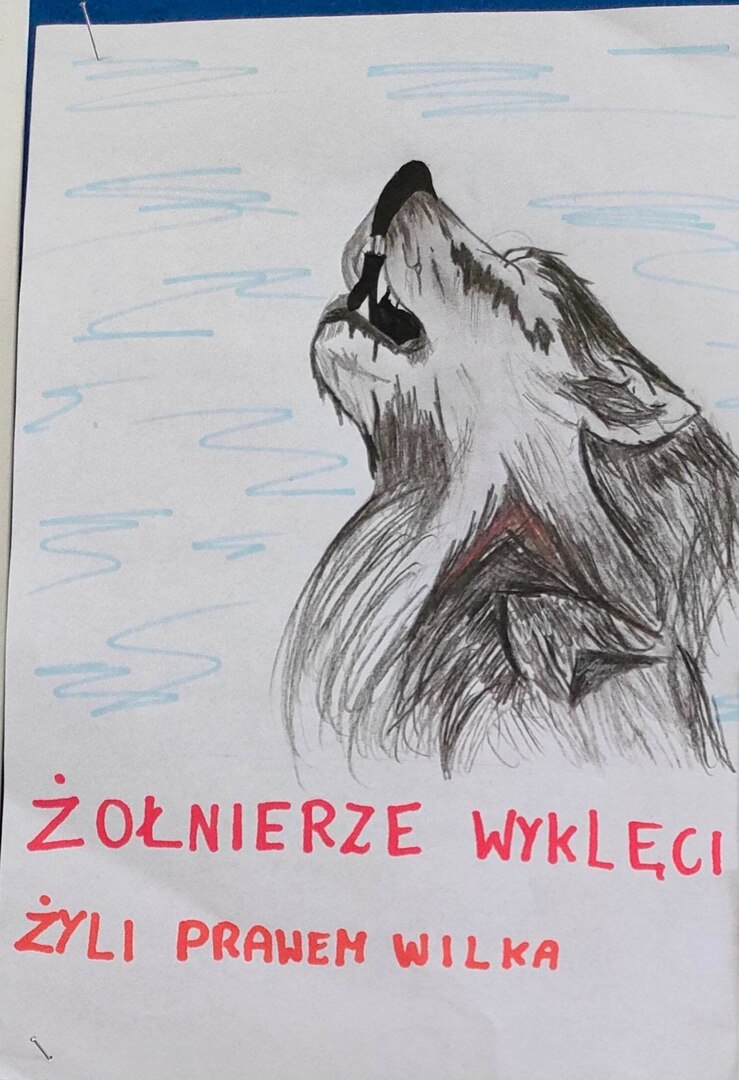 ŻOŁNIERZE WYKLĘCI
ŻYLI PRAWEM WILKA